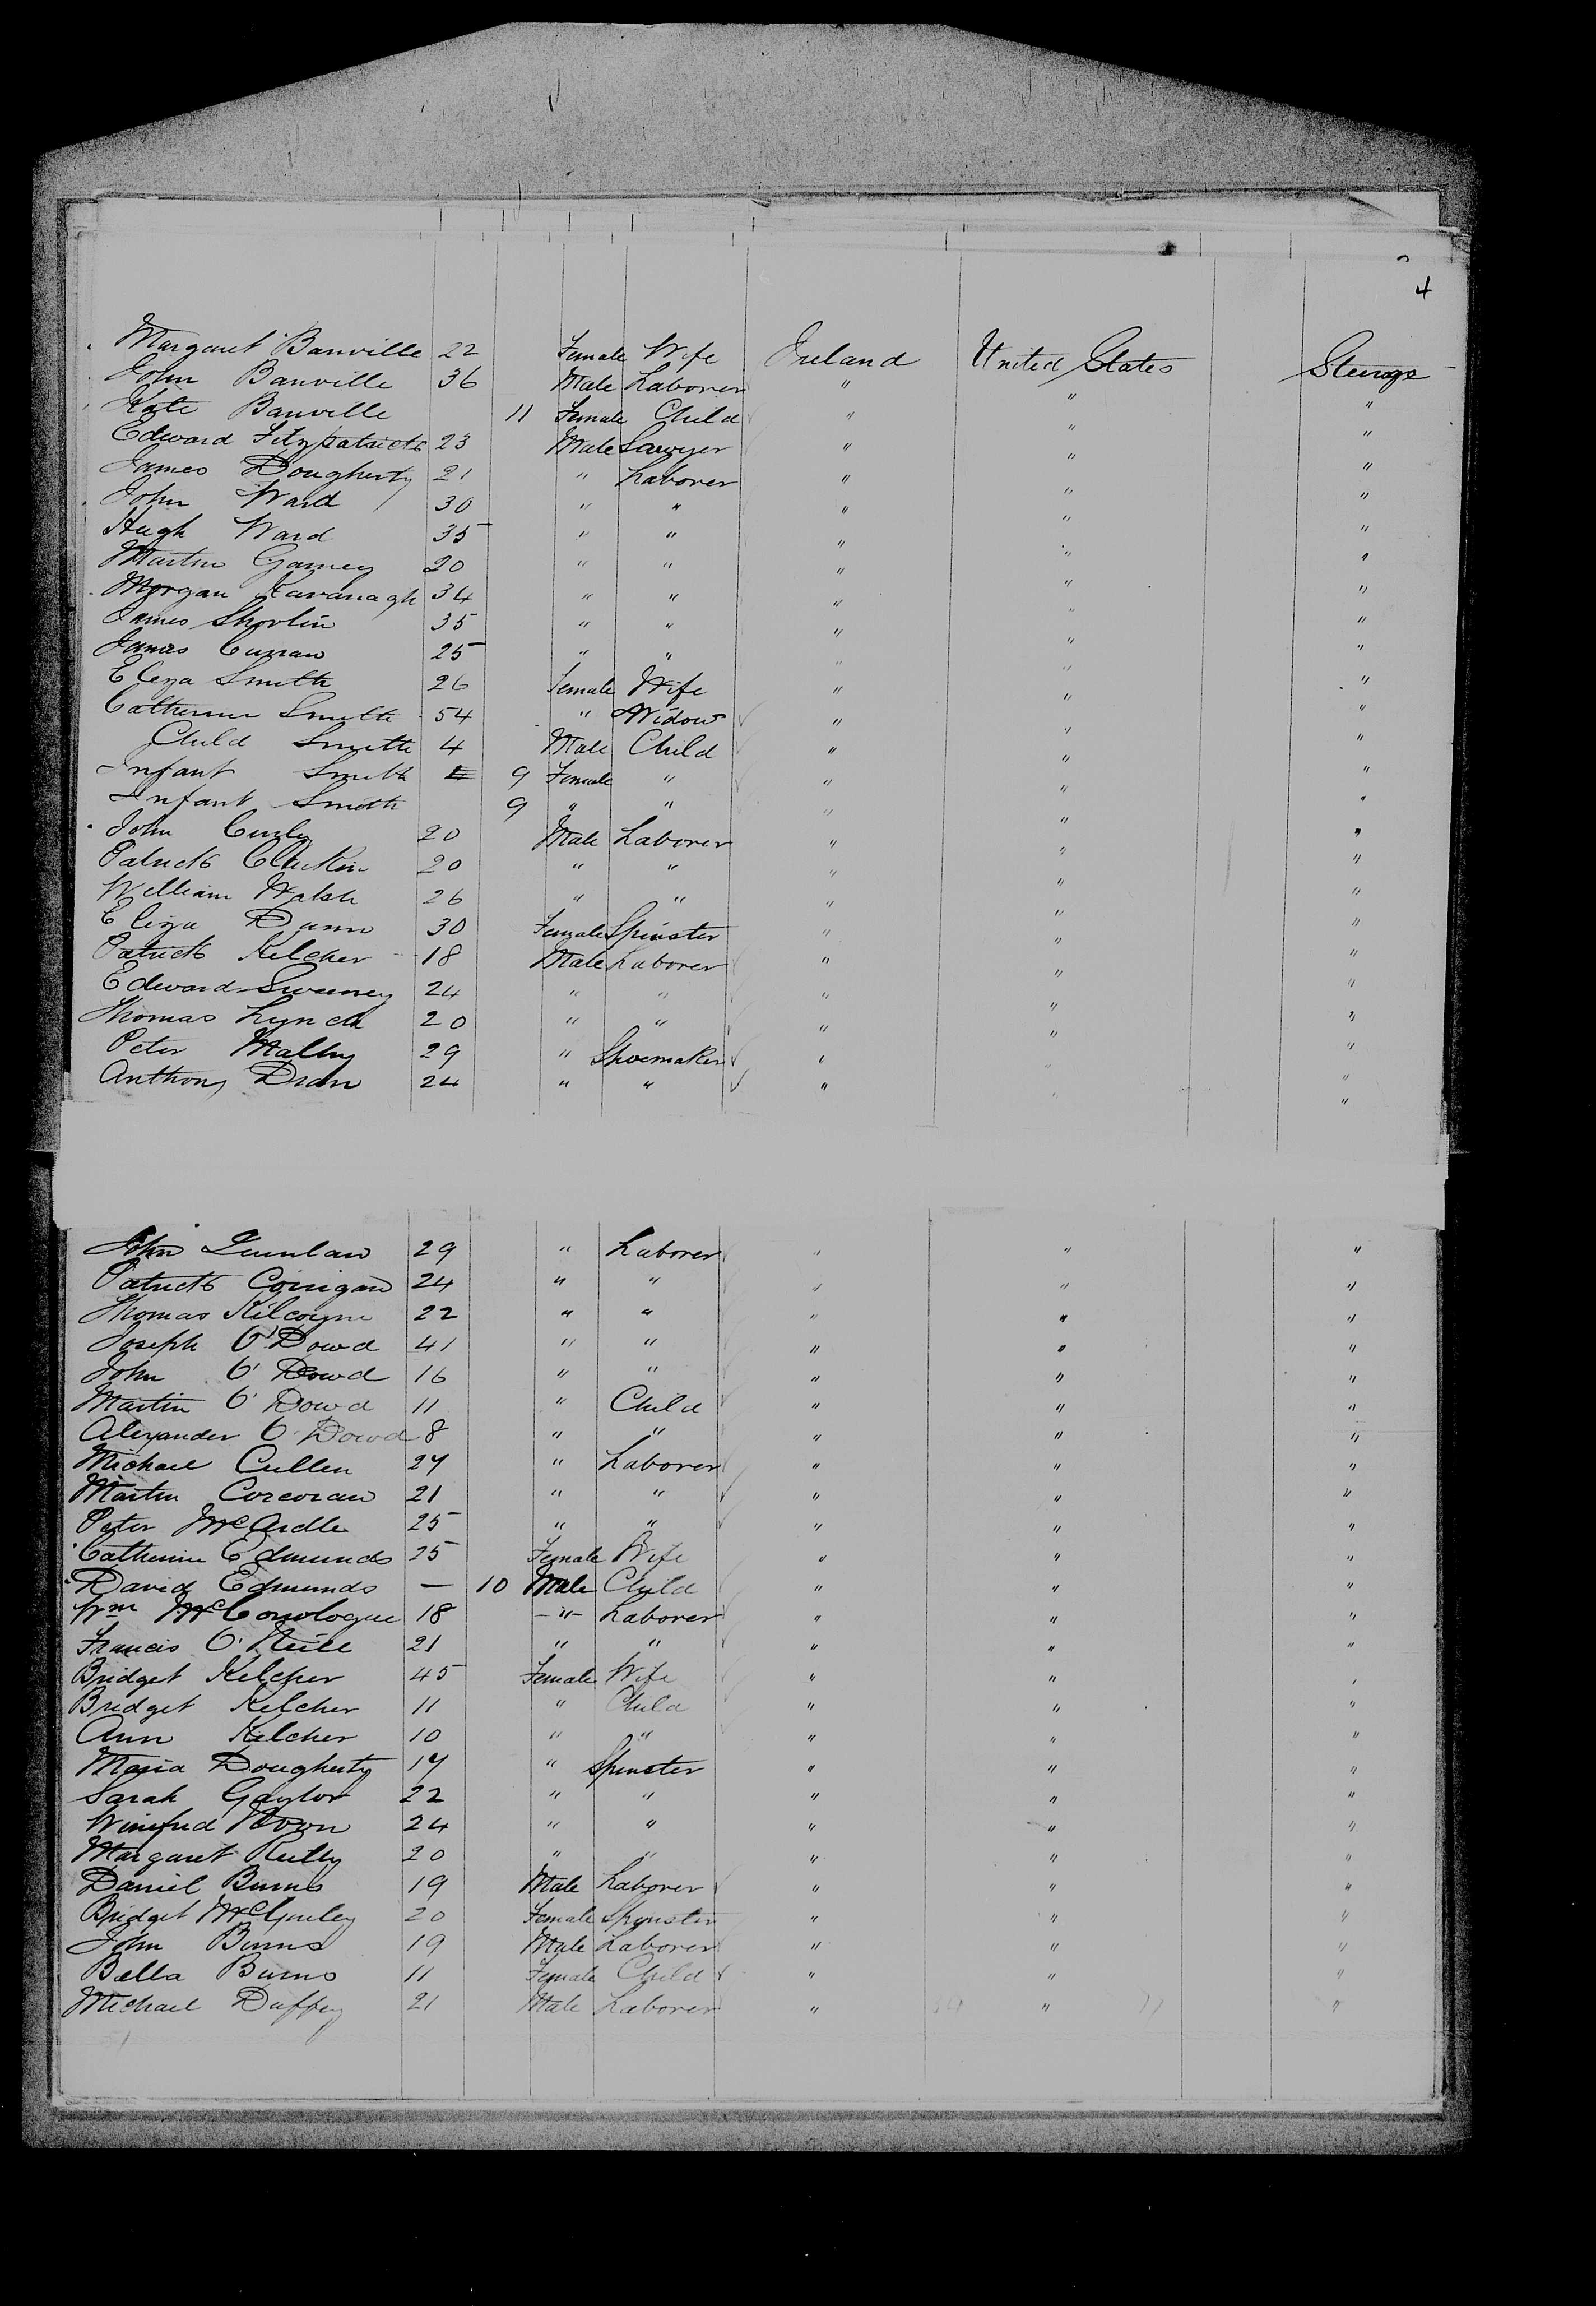 4
Margaret Banville 22 Female Wife Ireland United States Steerage
John Banville 36 Male Laborer " " "
Kate Banville 11 Female Child " " "
Edward Fitzpatrick 23 Male Sawyer " " "
James Dougherty 21 " Laborer " " "
John Ward 30 " " " " "
Hugh Ward 35 " " " " "
Martin Garvey 20 " " " " "
Morgan Kavanagh 34 " " " " "
James Shovlin 35 " " " " "
James Curran 25 " " " " "
Eliza Smith 26 Female Wife " " "
Catherine Smith 54 " Widow " " "
Child Smith 4 Male Child " " "
Infant Smith 9 Female " " " "
Infant Smith 9 " " " " "
John Curley 20 Male Laborer " " "
Patrick 20 " " " " "
William Walsh 26 " " " " "
Eliza Dunn 30 Female Spinster " " "
Patrick Kelcher 18 Male Laborer " " "
Edward Sweeney 24 " " " " "
Thomas Lynch 20 " " " " "
Peter 29 " Shoemaker " " "
Anthony 24 " " " " "
John Quinlan 29 " Laborer " " "
Patrick Corrigan 24 " " " " "
Thomas Kilcoyne 22 " " " " "
Joseph O'Dowd 41 " " " " "
John O'Dowd 16 " " " " "
Martin O'Dowd 11 " Child " " "
Alexander O'Dowd 8 " " " " "
Michael Cullen 27 " Laborer " " "
Martin Corcoran 21 " " " " "
Peter McArdle 25 " " " " "
Catherine Edmunds 25 Female Wife " " "
David Edmunds — 10 Male Child " " "
Wm McConologue 18 -"- Laborer " " "
Francis O'Neill 21 " " " " "
Bridget Kelcher 45 Female Wife " " "
Bridget Kelcher 11 " Child " " "
Ann Kelcher 10 " " " " "
Maria Dougherty 17 " Spinster " " "
Sarah Gaylor 22 " " " " "
Winifred 24 " " " " "
Margaret Reilly 20 " " " " "
Daniel Burns 19 Male Laborer " " "
Bridget McGinley 20 Female Spinster " " "
John Burns 19 Male Laborer " " "
Bella Burns 11 Female Child " " "
Michael Duffey 21 Male Laborer " " "